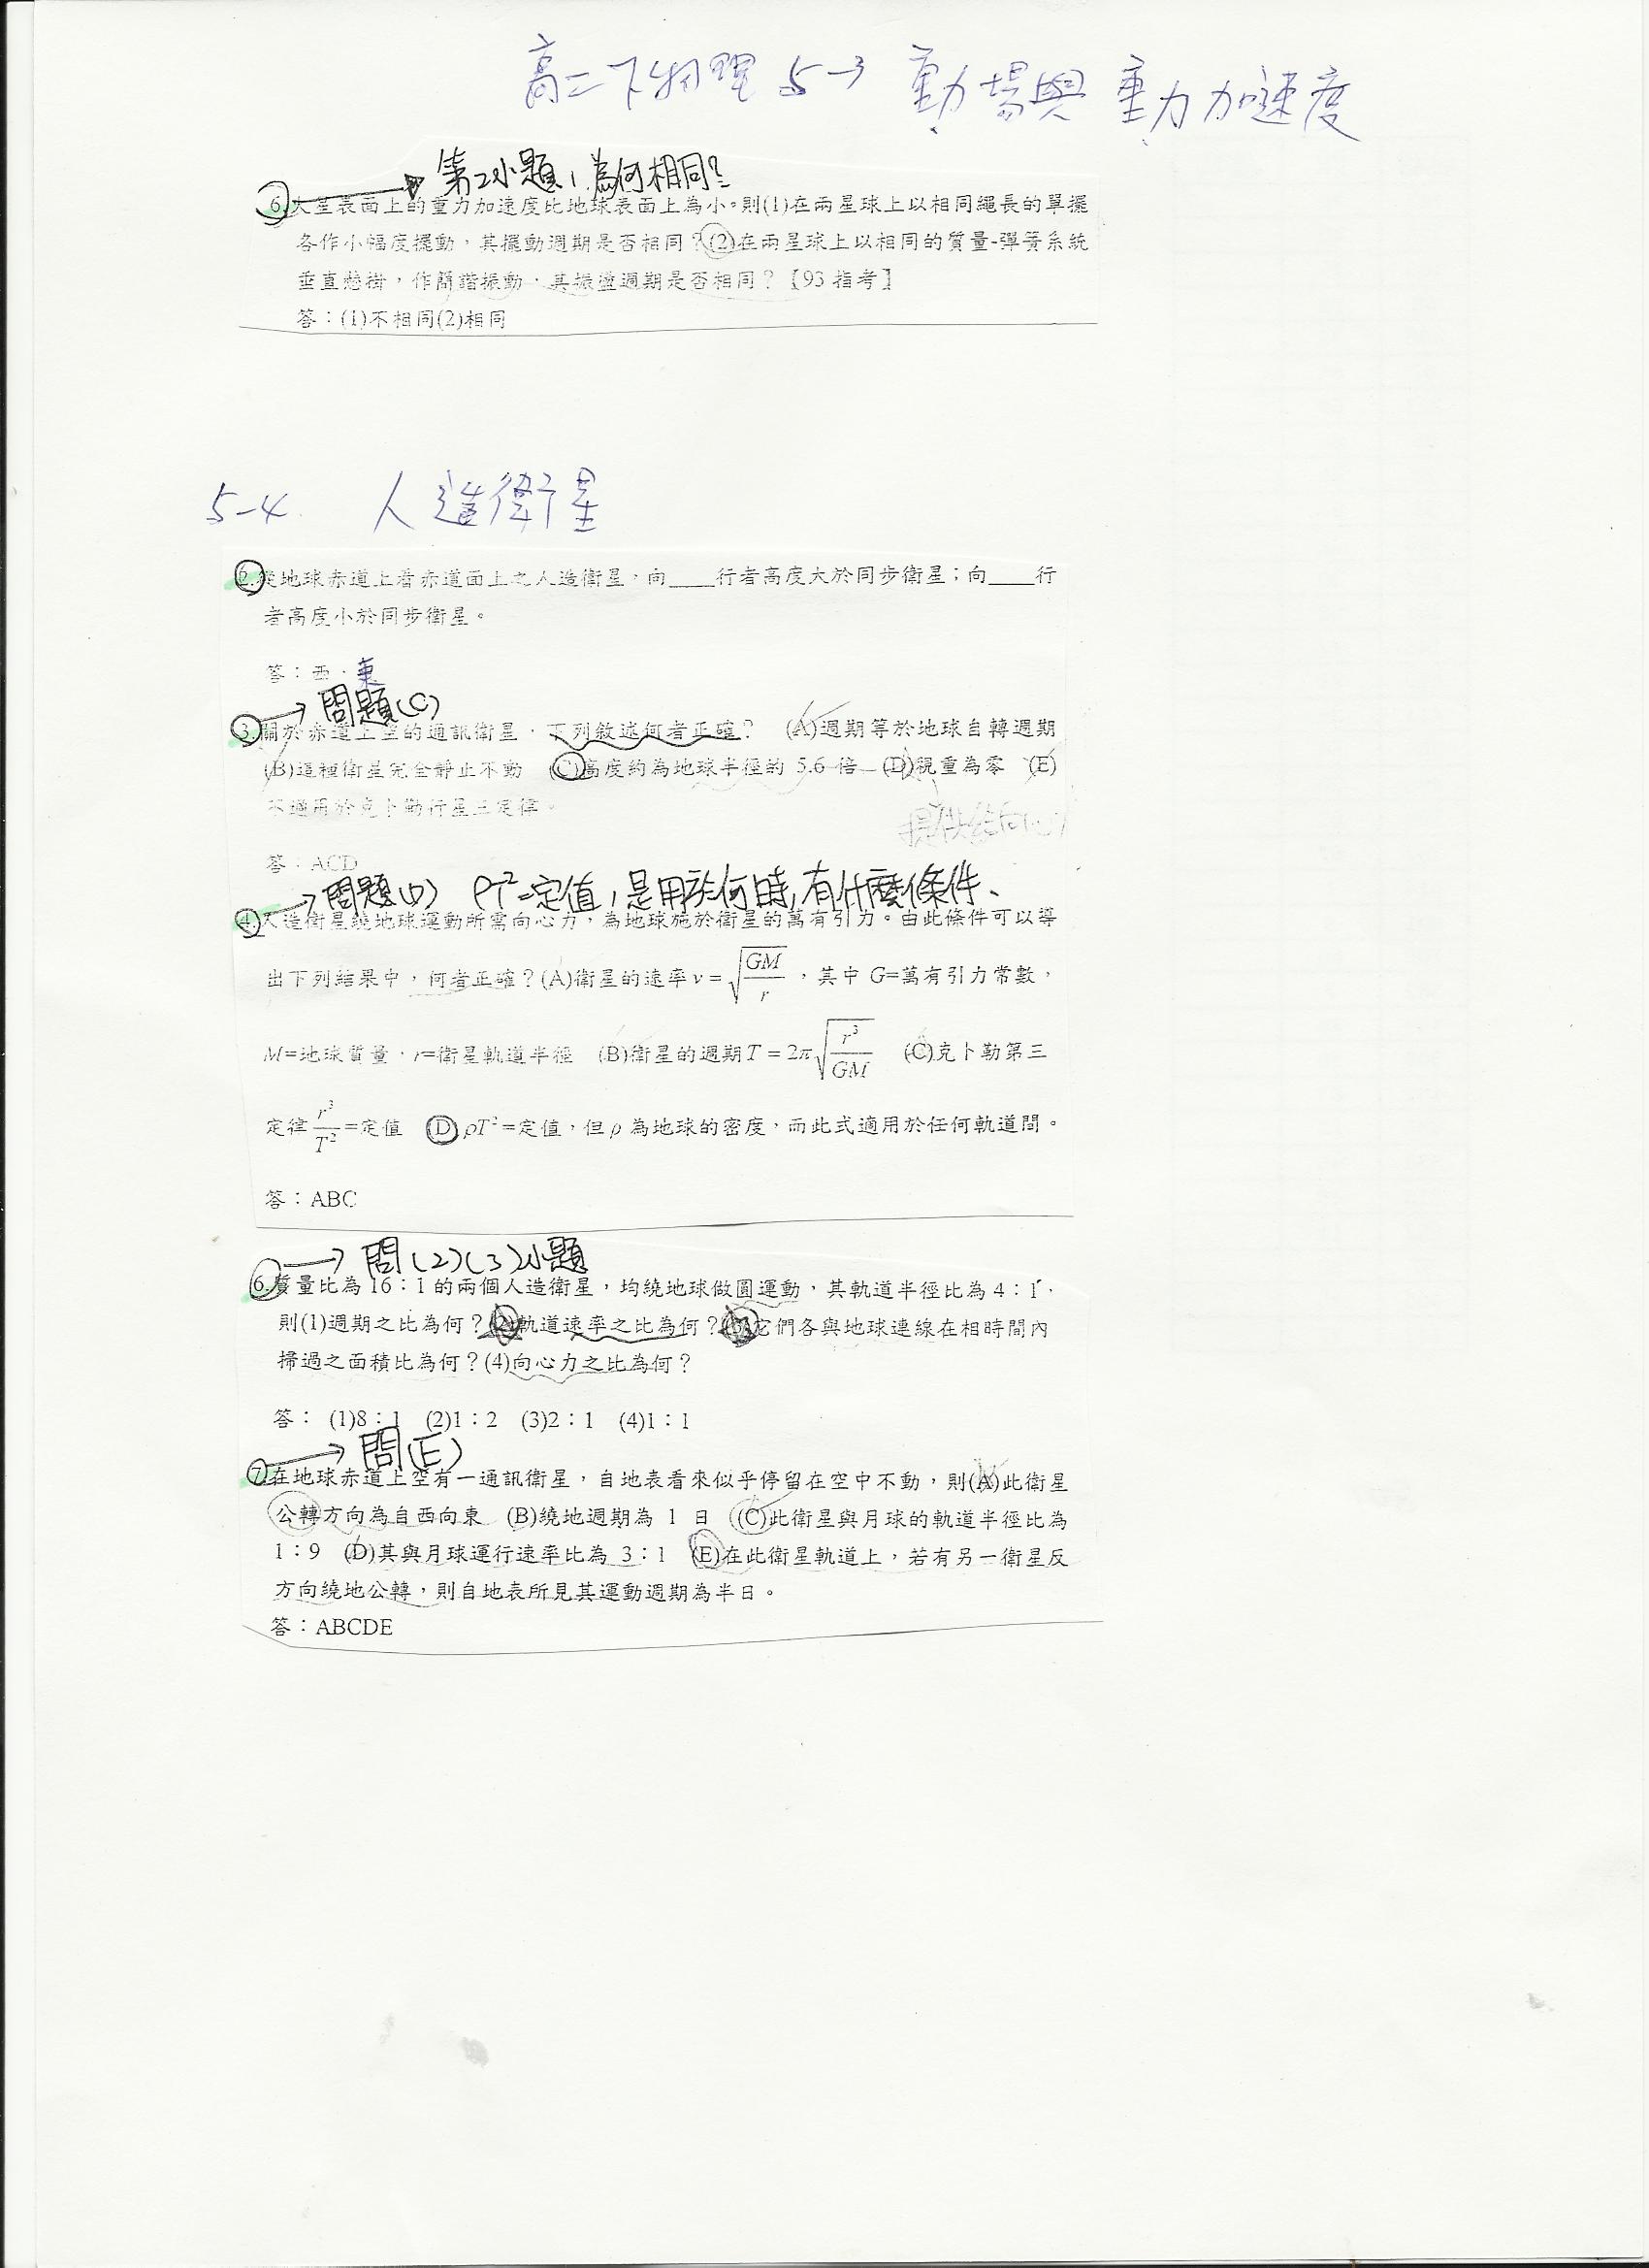 高二下物理 5-3 重力場與重力加速度
第2小題,為何相同?
6.火星表面上的重力加速度比地球表面上為小。則(1)在兩星球上以相同繩長的單擺
各作小幅度擺動,其擺動週期是否相同?(2)在兩星球上以相同的質量-彈簧系統
垂直懸掛,作簡諧振動,其振盪週期是否相同?【93 指考】
答:(1)不相同(2)相同
5-4. 人造衛星
2.從地球赤道上看赤道面上之人造衛星,向____行者高度大於同步衛星;向____行
者高度小於同步衛星。
答:西,東
問題(C)
3.關於赤道上空的通訊衛星,下列敘述何者正確? (A)週期等於地球自轉週期
(B)這種衛星完全靜止不動 (C)高度約為地球半徑的 5.6 倍 (D)視重為零 (E)
不適用於克卜勒行星三定律。
答:ACD
問題(D) ρT²=定值,是用於何時,有什麼條件、
4.人造衛星繞地球運動所需向心力,為地球施於衛星的萬有引力。由此條件可以導
出下列結果中,何者正確?(A)衛星的速率 v=√(GM/r),其中 G=萬有引力常數,
M=地球質量,r=衛星軌道半徑 (B)衛星的週期 T=2π√(r³/GM) (C)克卜勒第三
定律 r³/T²=定值 (D)ρT²=定值,但 ρ 為地球的密度,而此式適用於任何軌道間。
答:ABC
問(2)(3)小題
6.質量比為 16:1 的兩個人造衛星,均繞地球做圓運動,其軌道半徑比為 4:1,
則(1)週期之比為何?(2)軌道速率之比為何?(3)它們各與地球連線在相時間內
掃過之面積比為何?(4)向心力之比為何?
答: (1)8:1 (2)1:2 (3)2:1 (4)1:1
問(E)
7.在地球赤道上空有一通訊衛星,自地表看來似乎停留在空中不動,則(A)此衛星
公轉方向為自西向東 (B)繞地週期為 1 日 (C)此衛星與月球的軌道半徑比為
1:9 (D)其與月球運行速率比為 3:1 (E)在此衛星軌道上,若有另一衛星反
方向繞地公轉,則自地表所見其運動週期為半日。
答:ABCDE